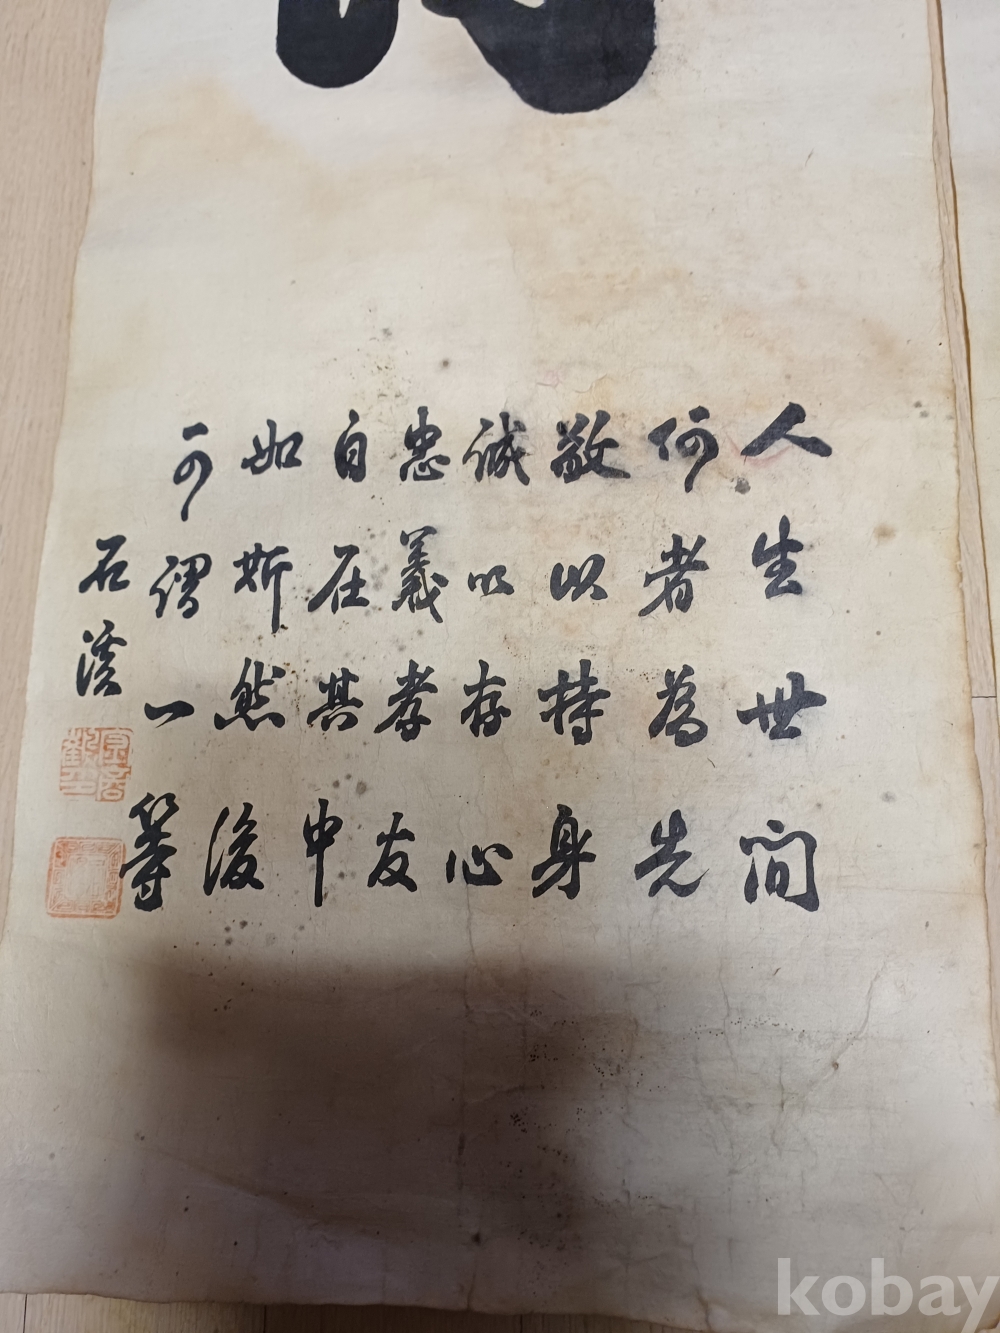 人生世間
何者為先
敬以持身
誠以存心
忠義孝友
自在其中
如斯然後
可謂一等
石溪
kobay